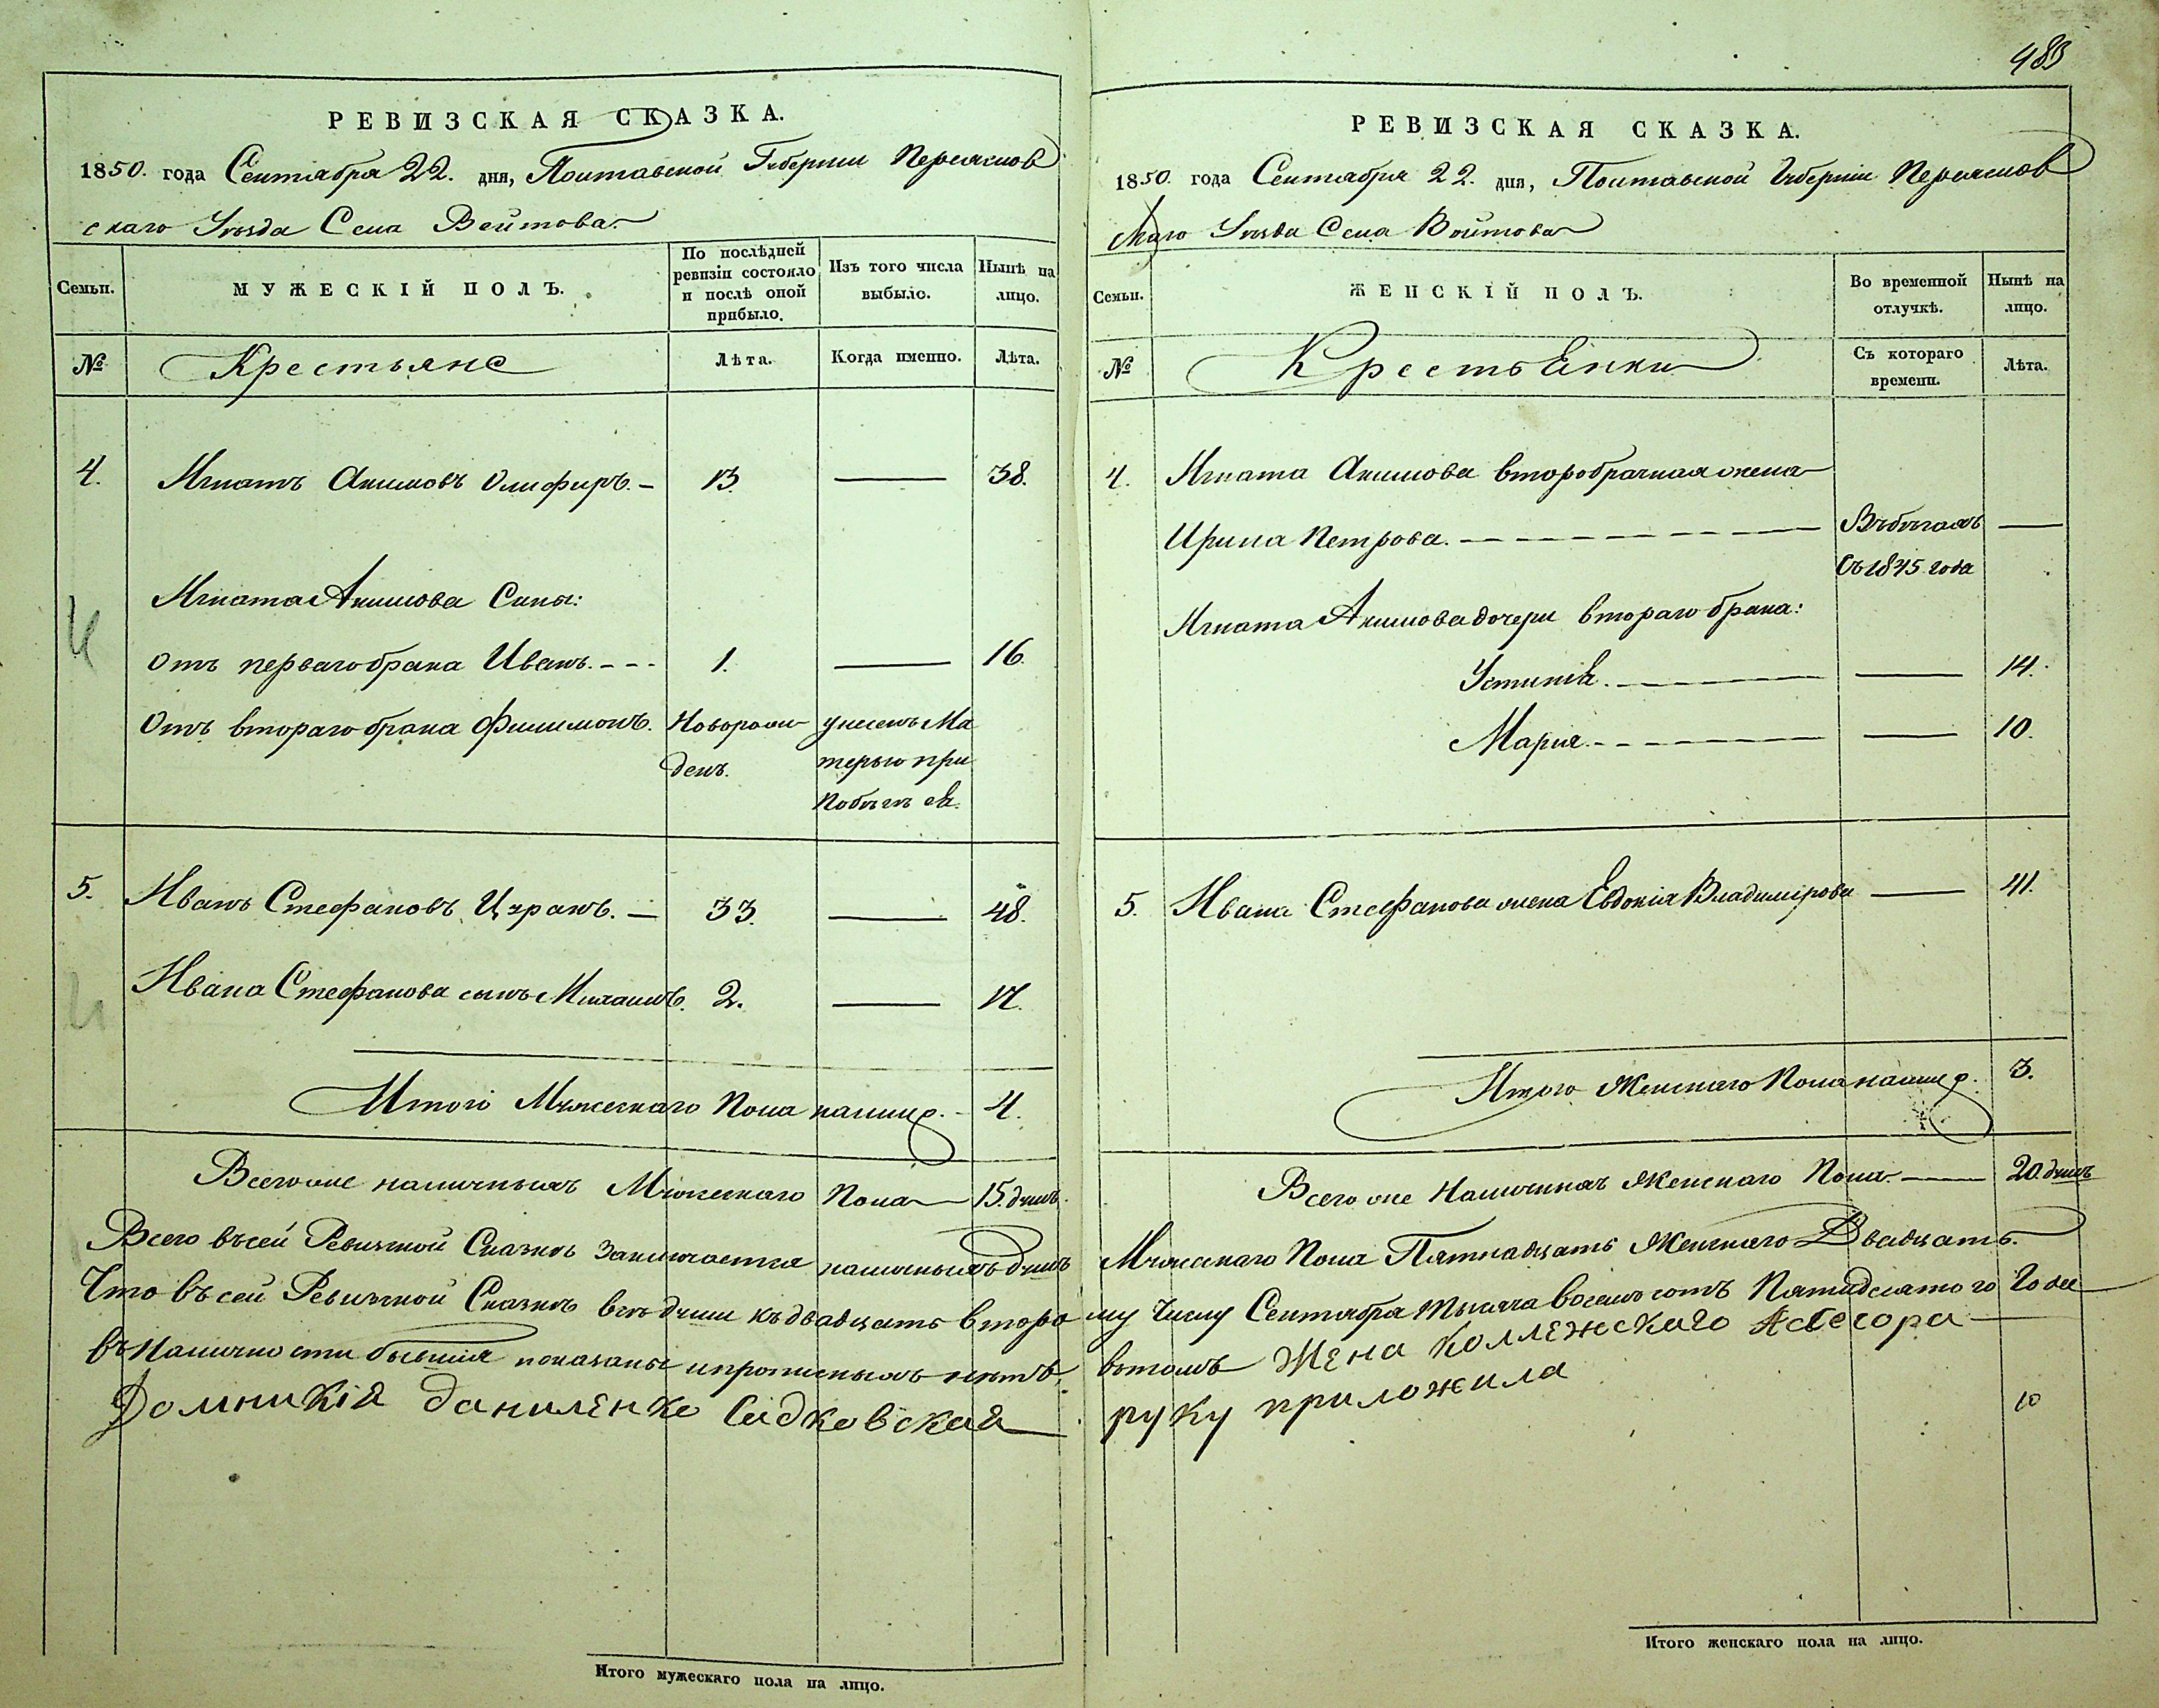 483
РЕВИЗСКАЯ СКАЗКА.
1850. года Сентября 22. дня, Полтавской Губернии Переяслов
скаго Уѣзда Села Войтова
Семьи.
МУЖЕСКІЙ ПОЛЪ.
По послѣдней
ревизіи состояло
и послѣ оной
прибыло.
Изъ того числа
выбыло.
Нынѣ на
лицо.
№
Крестьяне
Лѣта.
Когда именно.
Лѣта.
4. Игнатъ Акимовъ Олифиръ. 13. 38.
Игната Акимова Сины:
отъ перваго брака Иванъ. 1. 16.
Отъ втораго брака Филимонъ. Новорож унесенъ Ма
денъ. терью при
побѣгѣ ея.
5. Иванъ Стефановъ Цуранъ. 33. 48.
Ивана Стефанова сынъ Михаилъ. 2. 17.
Итого Мужескаго Пола налицо. 4.
Всего же наличныхъ Мужескаго Пола 15. душъ.
Всего въсей Ревизской Сказкѣ заключается наличныхъ душъ
Что въсей Ревизской Сказкѣ всѣ души къдвадцать второ
въ Наличности бывшія показаны и прописныхъ нѣтъ,
Домникія Даниленко Садковская
Итого мужескаго пола на лицо.
РЕВИЗСКАЯ СКАЗКА.
1850. года Сентября 22. дня, Полтавской Губерніи Переяслов
скаго Уѣзда Села Войтова
Семьи.
ЖЕНСКІЙ ПОЛЪ.
Во временной
отлучкѣ.
Нынѣ на
лицо.
№
КрестьЕнки
Съ котораго
времени.
Лѣта.
4. Игната Акимова второбрачная жена
Ирина Петрова. Въбѣгахъ
Съ 1845 года
Игната Акимова дочери втораго брака:
Устинія. 14.
Марія. 10.
5. Ивана Стефанова жена Евдокія Владимірова 41.
Итого Женскаго Пола налицо. 3.
Всего же Наличныхъ Женскаго Пола. 20. душъ
Мужескаго Пола Пятнадцать Женскаго Двадцать.
му числу Сентября тысяча восемь сотъ Пятидесятого Года
вътомъ жена коллежскаго Асесора
руку приложила
10
Итого женскаго пола на лицо.